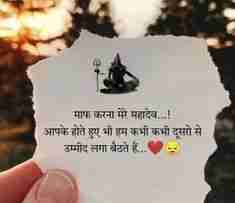 माफ करना मेरे महादेव...!
आपके होते हुए भी हम कभी कभी दूसरो से
उम्मीद लगा बैठते हैं...❤️😔